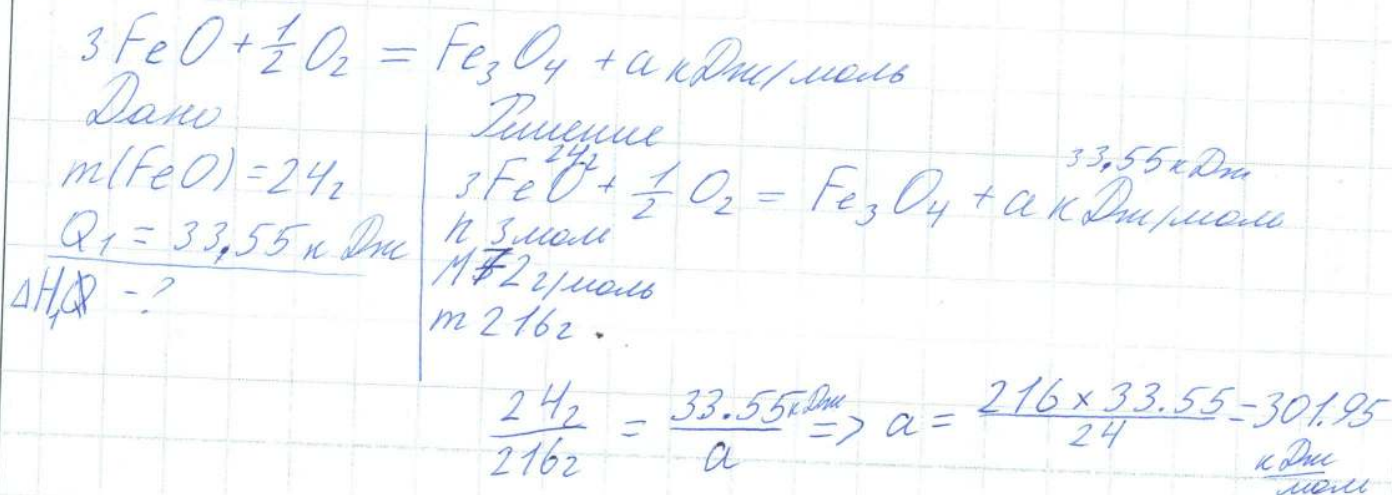 3FeO + 1/2 O₂ = Fe₃O₄ + a кДж/моль
Дано
m(FeO) = 24г
Q₁ = 33,55 кДж
ΔH, Q - ?
Решение
24г 33,55 кДж
3FeO + 1/2 O₂ = Fe₃O₄ + a кДж/моль
n 3 моль
M 72 г/моль
m 216г.
24г/216г = 33.55 кДж/a => a = 216 × 33.55/24 = 301.95 кДж/моль